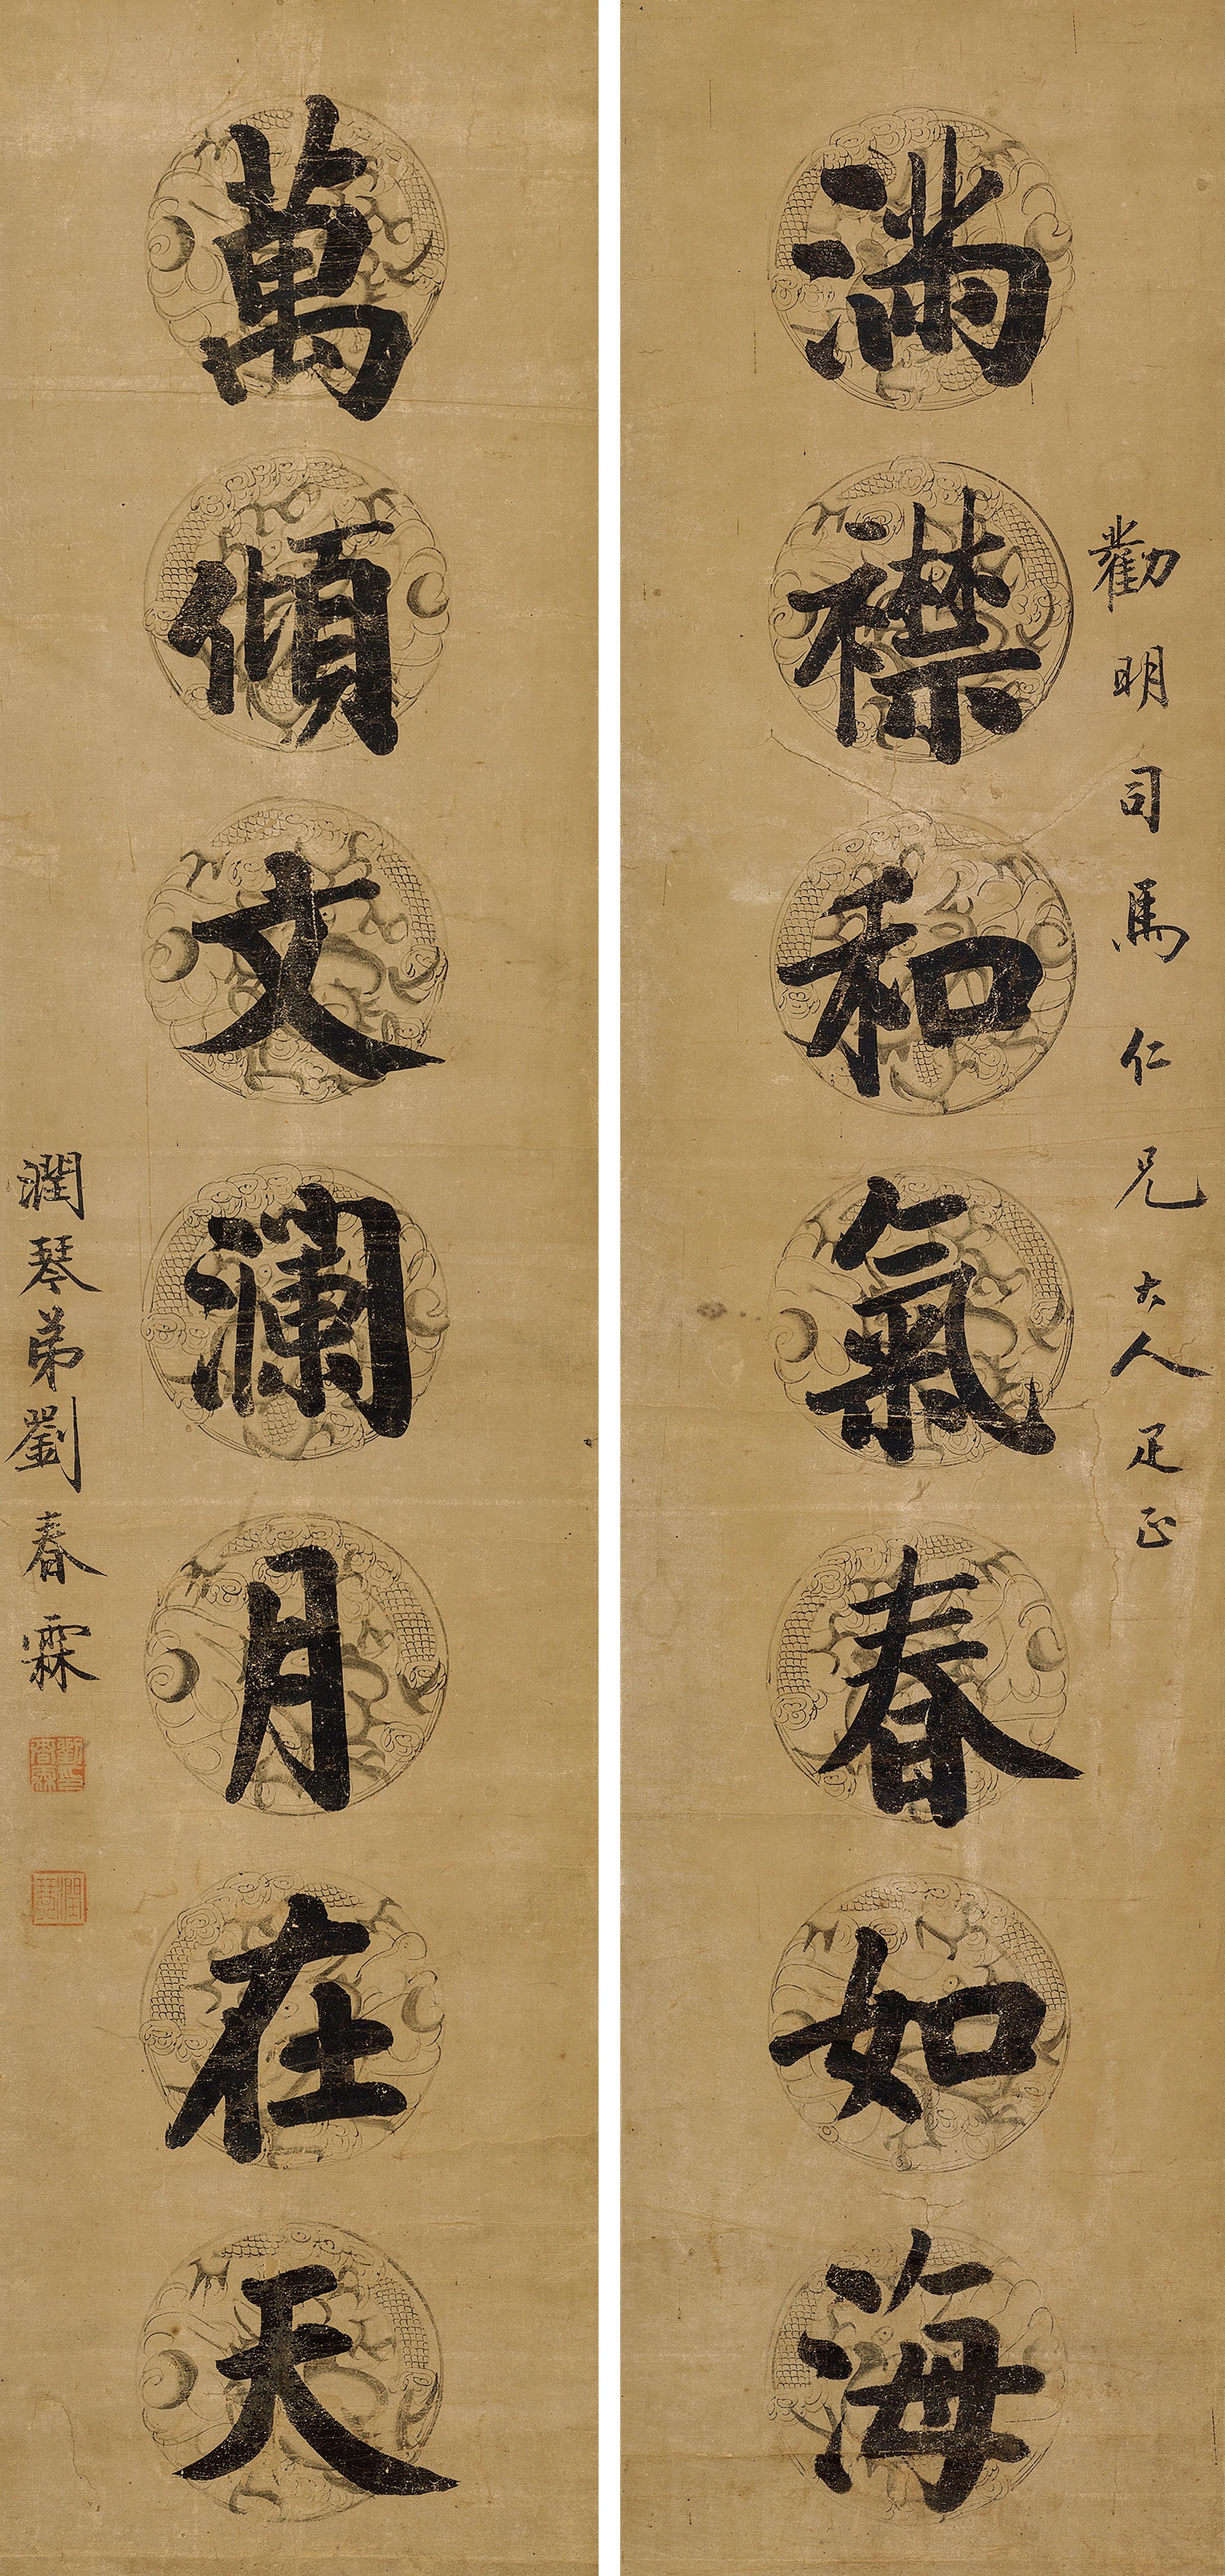 勸明司馬仁兄大人疋正
滿襟和氣春如海
萬傾文瀾月在天
潤琴弟劉春霖
劉春霖印
潤琴